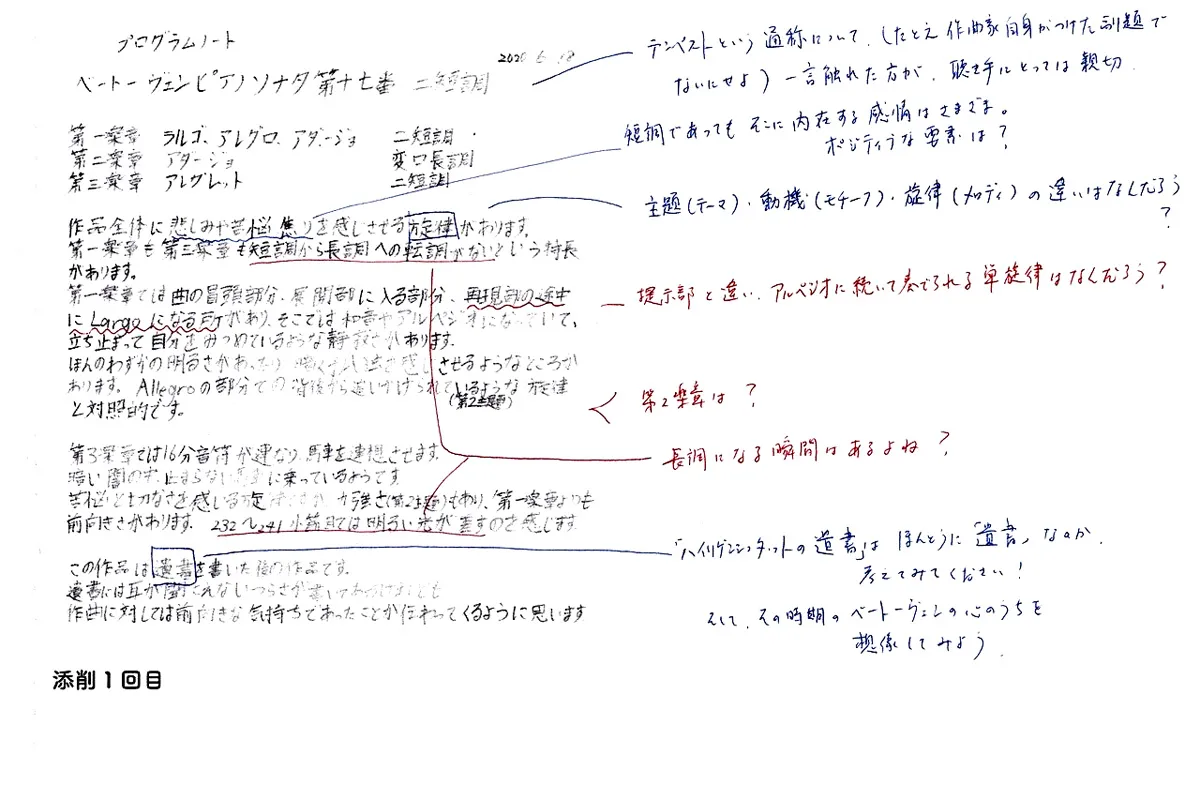 プログラムノート
2020 6.18
ベートーヴェンピアノソナタ第十七番 ニ短調
第一楽章 ラルゴ、アレグロ、アダージョ ニ短調
第二楽章 アダージョ 変ロ長調
第三楽章 アレグレット ニ短調
作品全体に悲しみや苦悩 焦りを感じさせる旋律があります。
第一楽章も第三楽章も短調から長調への転調がないという特長
があります。
第一楽章では曲の冒頭部分、展開部に入る部分、再現部の途中
にLargoになる所があり、そこでは和音やアルペジオになっていて、
立ち止まって自分をみつめているような静寂さがあります。
ほんのわずかの明るさがあったり 感じさせるようなところが
あります。Allegroの部分での背後から追いかけられているような旋律
(第2主題)
と対照的です。
第3楽章では16分音符が連なり、馬車を連想させます。
暗い闇の中、止まらない馬車に乗っているようです。
苦悩と切なさを感じる旋律 力強さ(第2主題)もあり、第一楽章よりも
前向きさがあります。232〜241小節目では明るい光が差すのを感じます。
この作品は遺書を書いた後の作品です。
遺書には耳が聞こえないつらさが書いてあるけれども
作曲に対しては前向きな気持ちであったことが伝わってくるように思います
テンペストという通称について、(たとえ作曲家自身がつけた副題で
ないにせよ)一言触れた方が、聴き手にとっては親切
短調であってもそこに内在する感情はさまざま。
ポジティブな要素は?
主題(テーマ)・動機(モチーフ)・旋律(メロディ)の違いはなんだろう
?
提示部と違い、アルペジオに続いて奏でられる単旋律はなんだろう?
第2楽章は?
長調になる瞬間はあるよね?
「ハイリゲンシュタットの遺書」はほんとうに「遺書」なのか
考えてみてください!
そして、その時期のベートーヴェンの心のうちを
想像してみよう
添削1回目